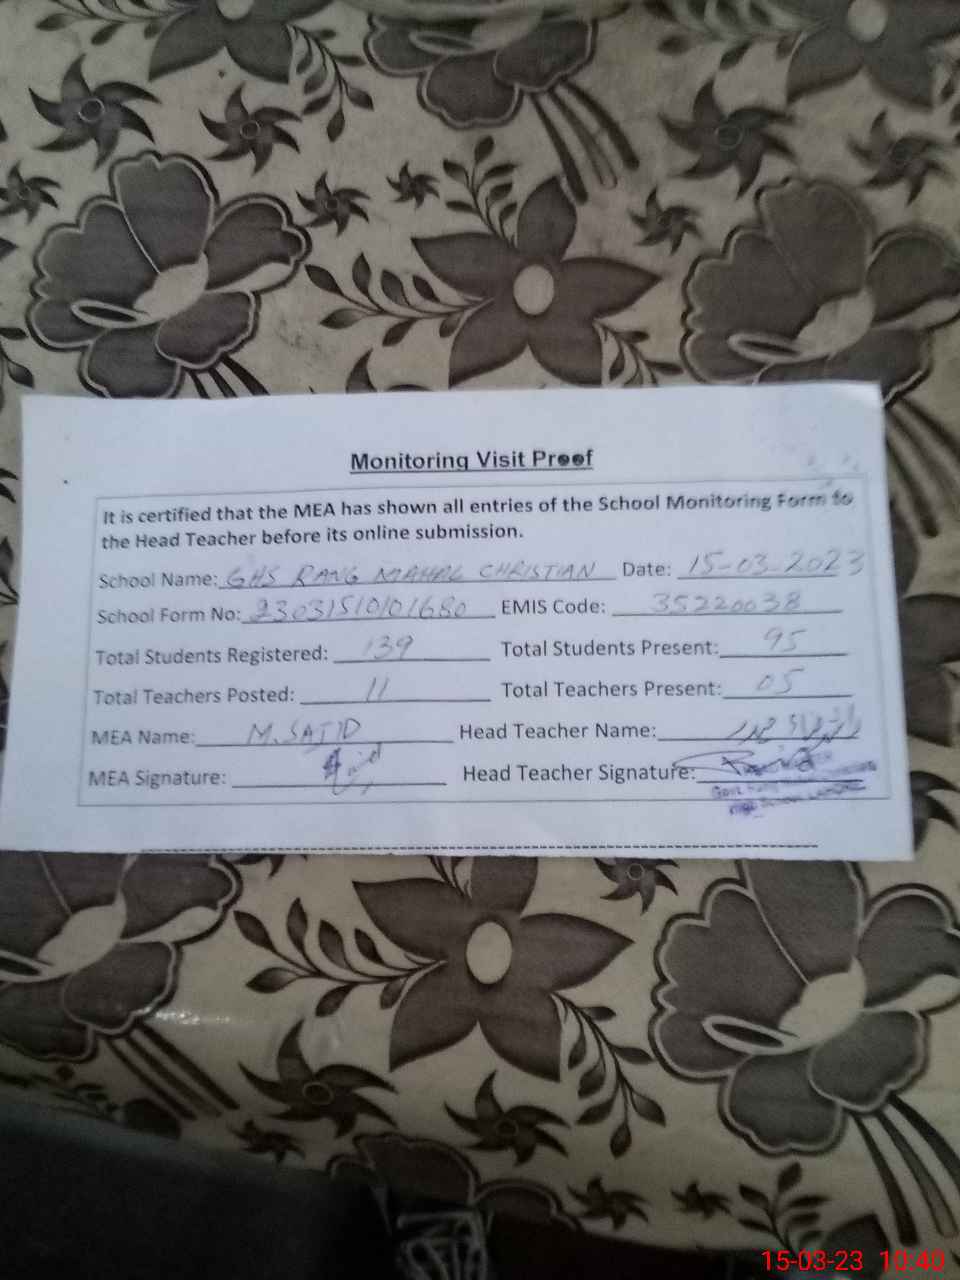 Monitoring Visit Proof
It is certified that the MEA has shown all entries of the School Monitoring Form to
the Head Teacher before its online submission.
School Name: GHS RANG MAHAL CHRISTIAN Date: 15-03-2023
School Form No: 23031510101680 EMIS Code: 35220038
Total Students Registered: 139 Total Students Present: 95
Total Teachers Posted: 11 Total Teachers Present: 05
MEA Name: M. SAJID Head Teacher Name:
MEA Signature: Head Teacher Signature:
Govt. Rang
High School
15-03-23 10:40